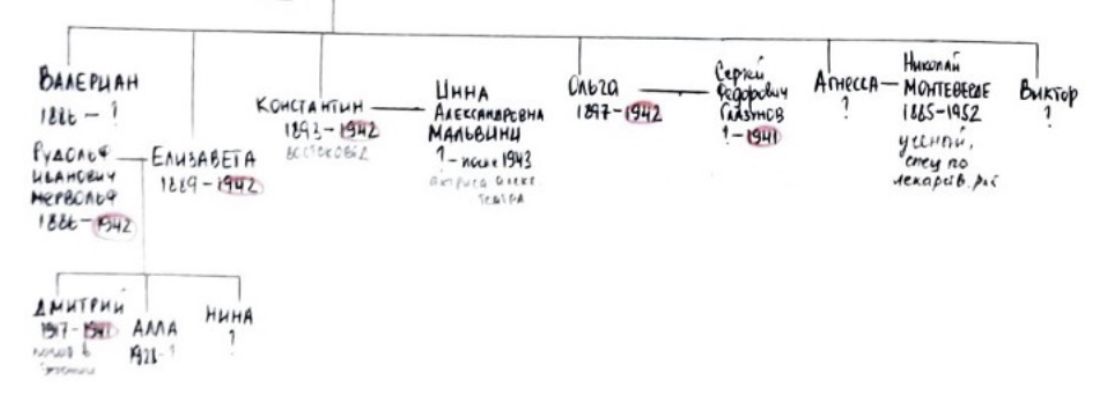 ВАЛЕРИАН
1886 – ?
РУДОЛЬФ
ИВАНОВИЧ
МЕРВОЛЬФ
1886 – 1942
ЕЛИЗАВЕТА
1889 – 1942
КОНСТАНТИН
1893 – 1942
ВОСТОКОВЕД
ИННА
АЛЕКСАНДРОВНА
МАЛЬВИНИ
? – после 1943
актриса алекс.
театра
ОЛЬГА
1897 – 1942
СЕРГЕЙ
ФЕДОРОВИЧ
ГЛАЗУНОВ
? – 1941
АГНЕССА
?
НИКОЛАЙ
МОНТЕВЕРДЕ
1885 – 1952
ученый,
спец по
лекарств. раст
ВИКТОР
?
ДМИТРИЙ
1917 – 1941
погиб в
АЛЛА
1928 – ?
НИНА
?